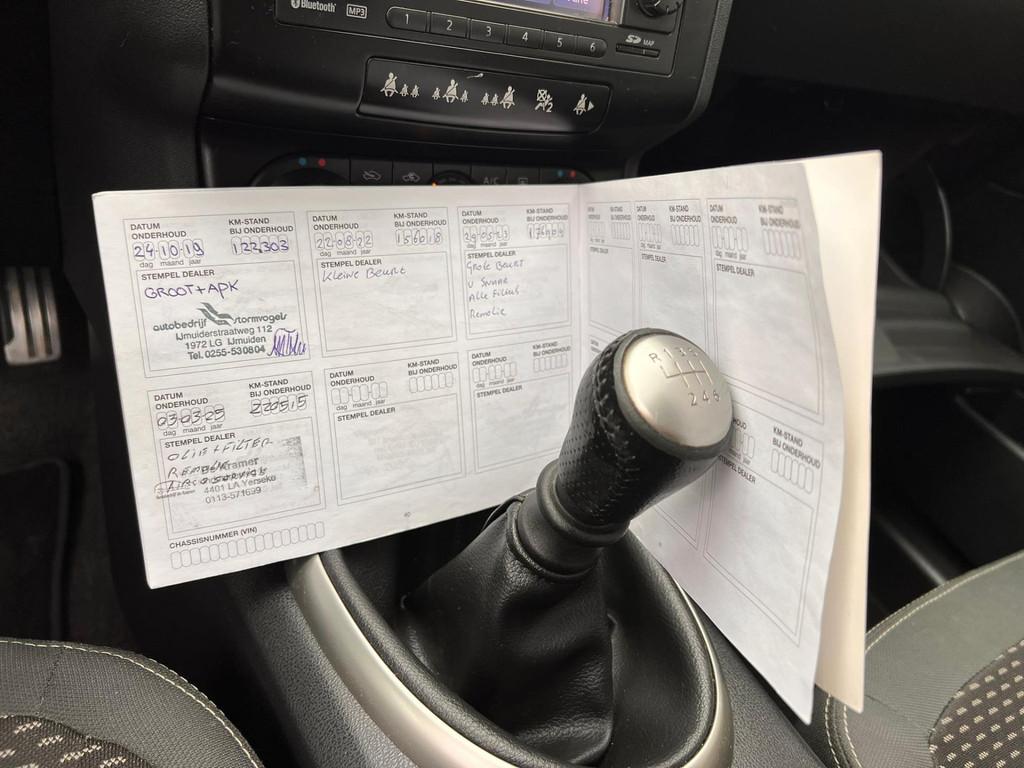 Bluetooth MP3
1 2 3 4 5 6
SD MAP
A/C
DATUM ONDERHOUD
KM-STAND BIJ ONDERHOUD
24-10-19 122.303
dag maand jaar
STEMPEL DEALER
GROOT+APK
autobedrijf stormvogels
IJmuiderstraatweg 112
1972 LG IJmuiden
Tel. 0255-530804
DATUM ONDERHOUD
KM-STAND BIJ ONDERHOUD
22-08-22 156018
dag maand jaar
STEMPEL DEALER
Kleine Beurt
DATUM ONDERHOUD
KM-STAND BIJ ONDERHOUD
dag maand jaar
STEMPEL DEALER
Grote Beurt
V Snaar
Alle Filters
Remolie
DATUM ONDERHOUD
KM-STAND BIJ ONDERHOUD
03-03-25
dag maand jaar
STEMPEL DEALER
OLIE + FILTER
Kramer
4401 LA Yerseke
0113-571699
DATUM ONDERHOUD
KM-STAND BIJ ONDERHOUD
dag maand jaar
STEMPEL DEALER
DATUM ONDERHOUD
KM-STAND BIJ ONDERHOUD
dag maand jaar
STEMPEL DEALER
CHASSISNUMMER (VIN)
DATUM ONDERHOUD
KM-STAND BIJ ONDERHOUD
dag maand jaar
STEMPEL DEALER
DATUM ONDERHOUD
KM-STAND BIJ ONDERHOUD
dag maand jaar
STEMPEL DEALER
KM-STAND BIJ ONDERHOUD
STEMPEL DEALER
R 1 3 5
2 4 6